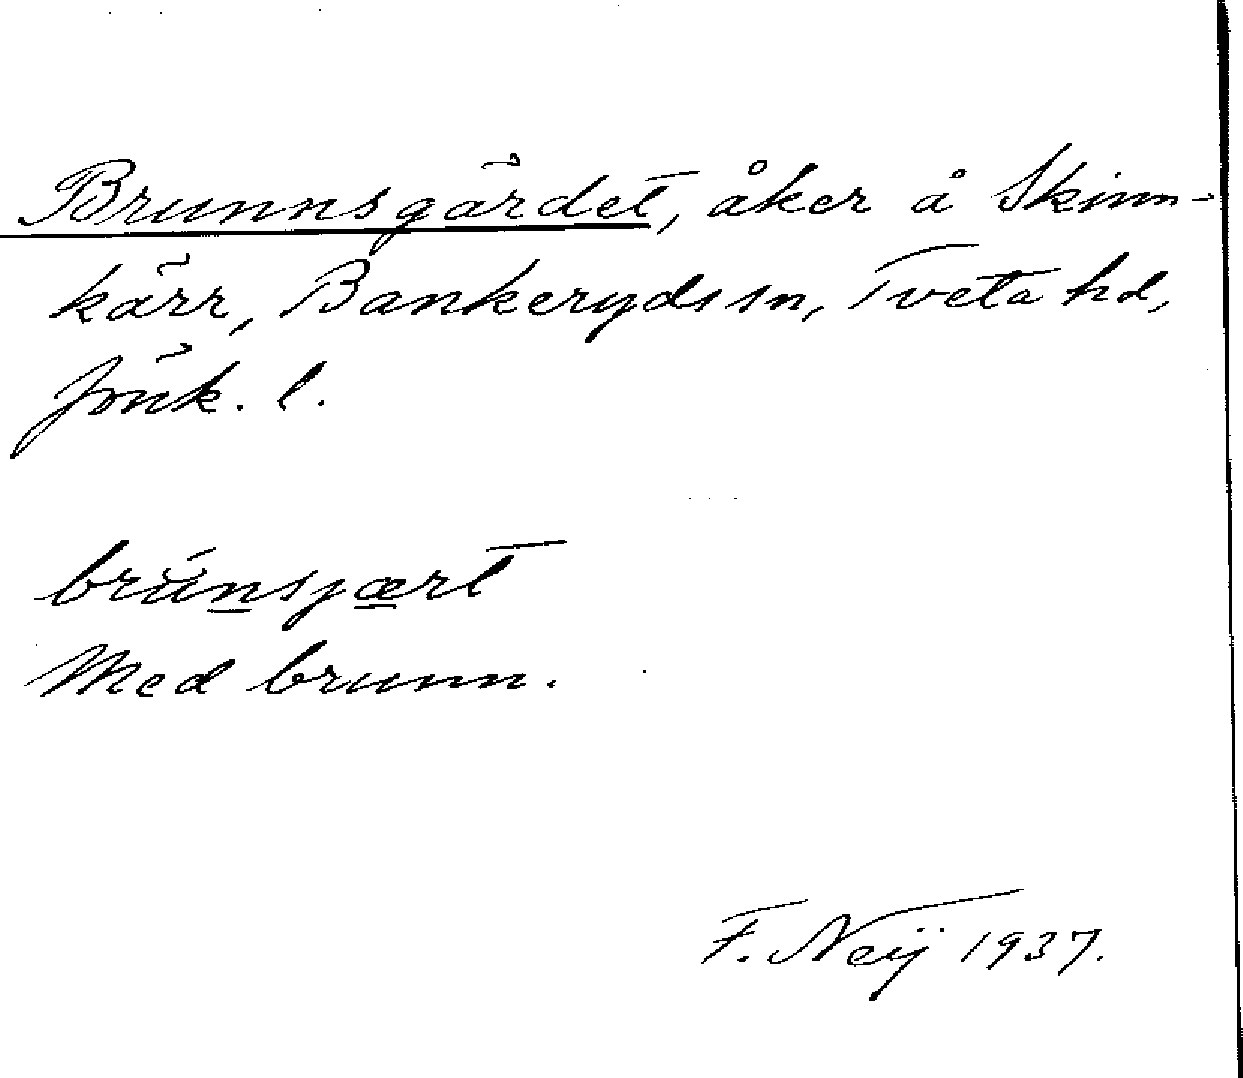 Brunnsgärdet, åker å Skinn-
kärr, Bankeryds sn, Tveta hd,
Jönk. l.
brúnsjært
Med brunn.
F. Neij 1937.